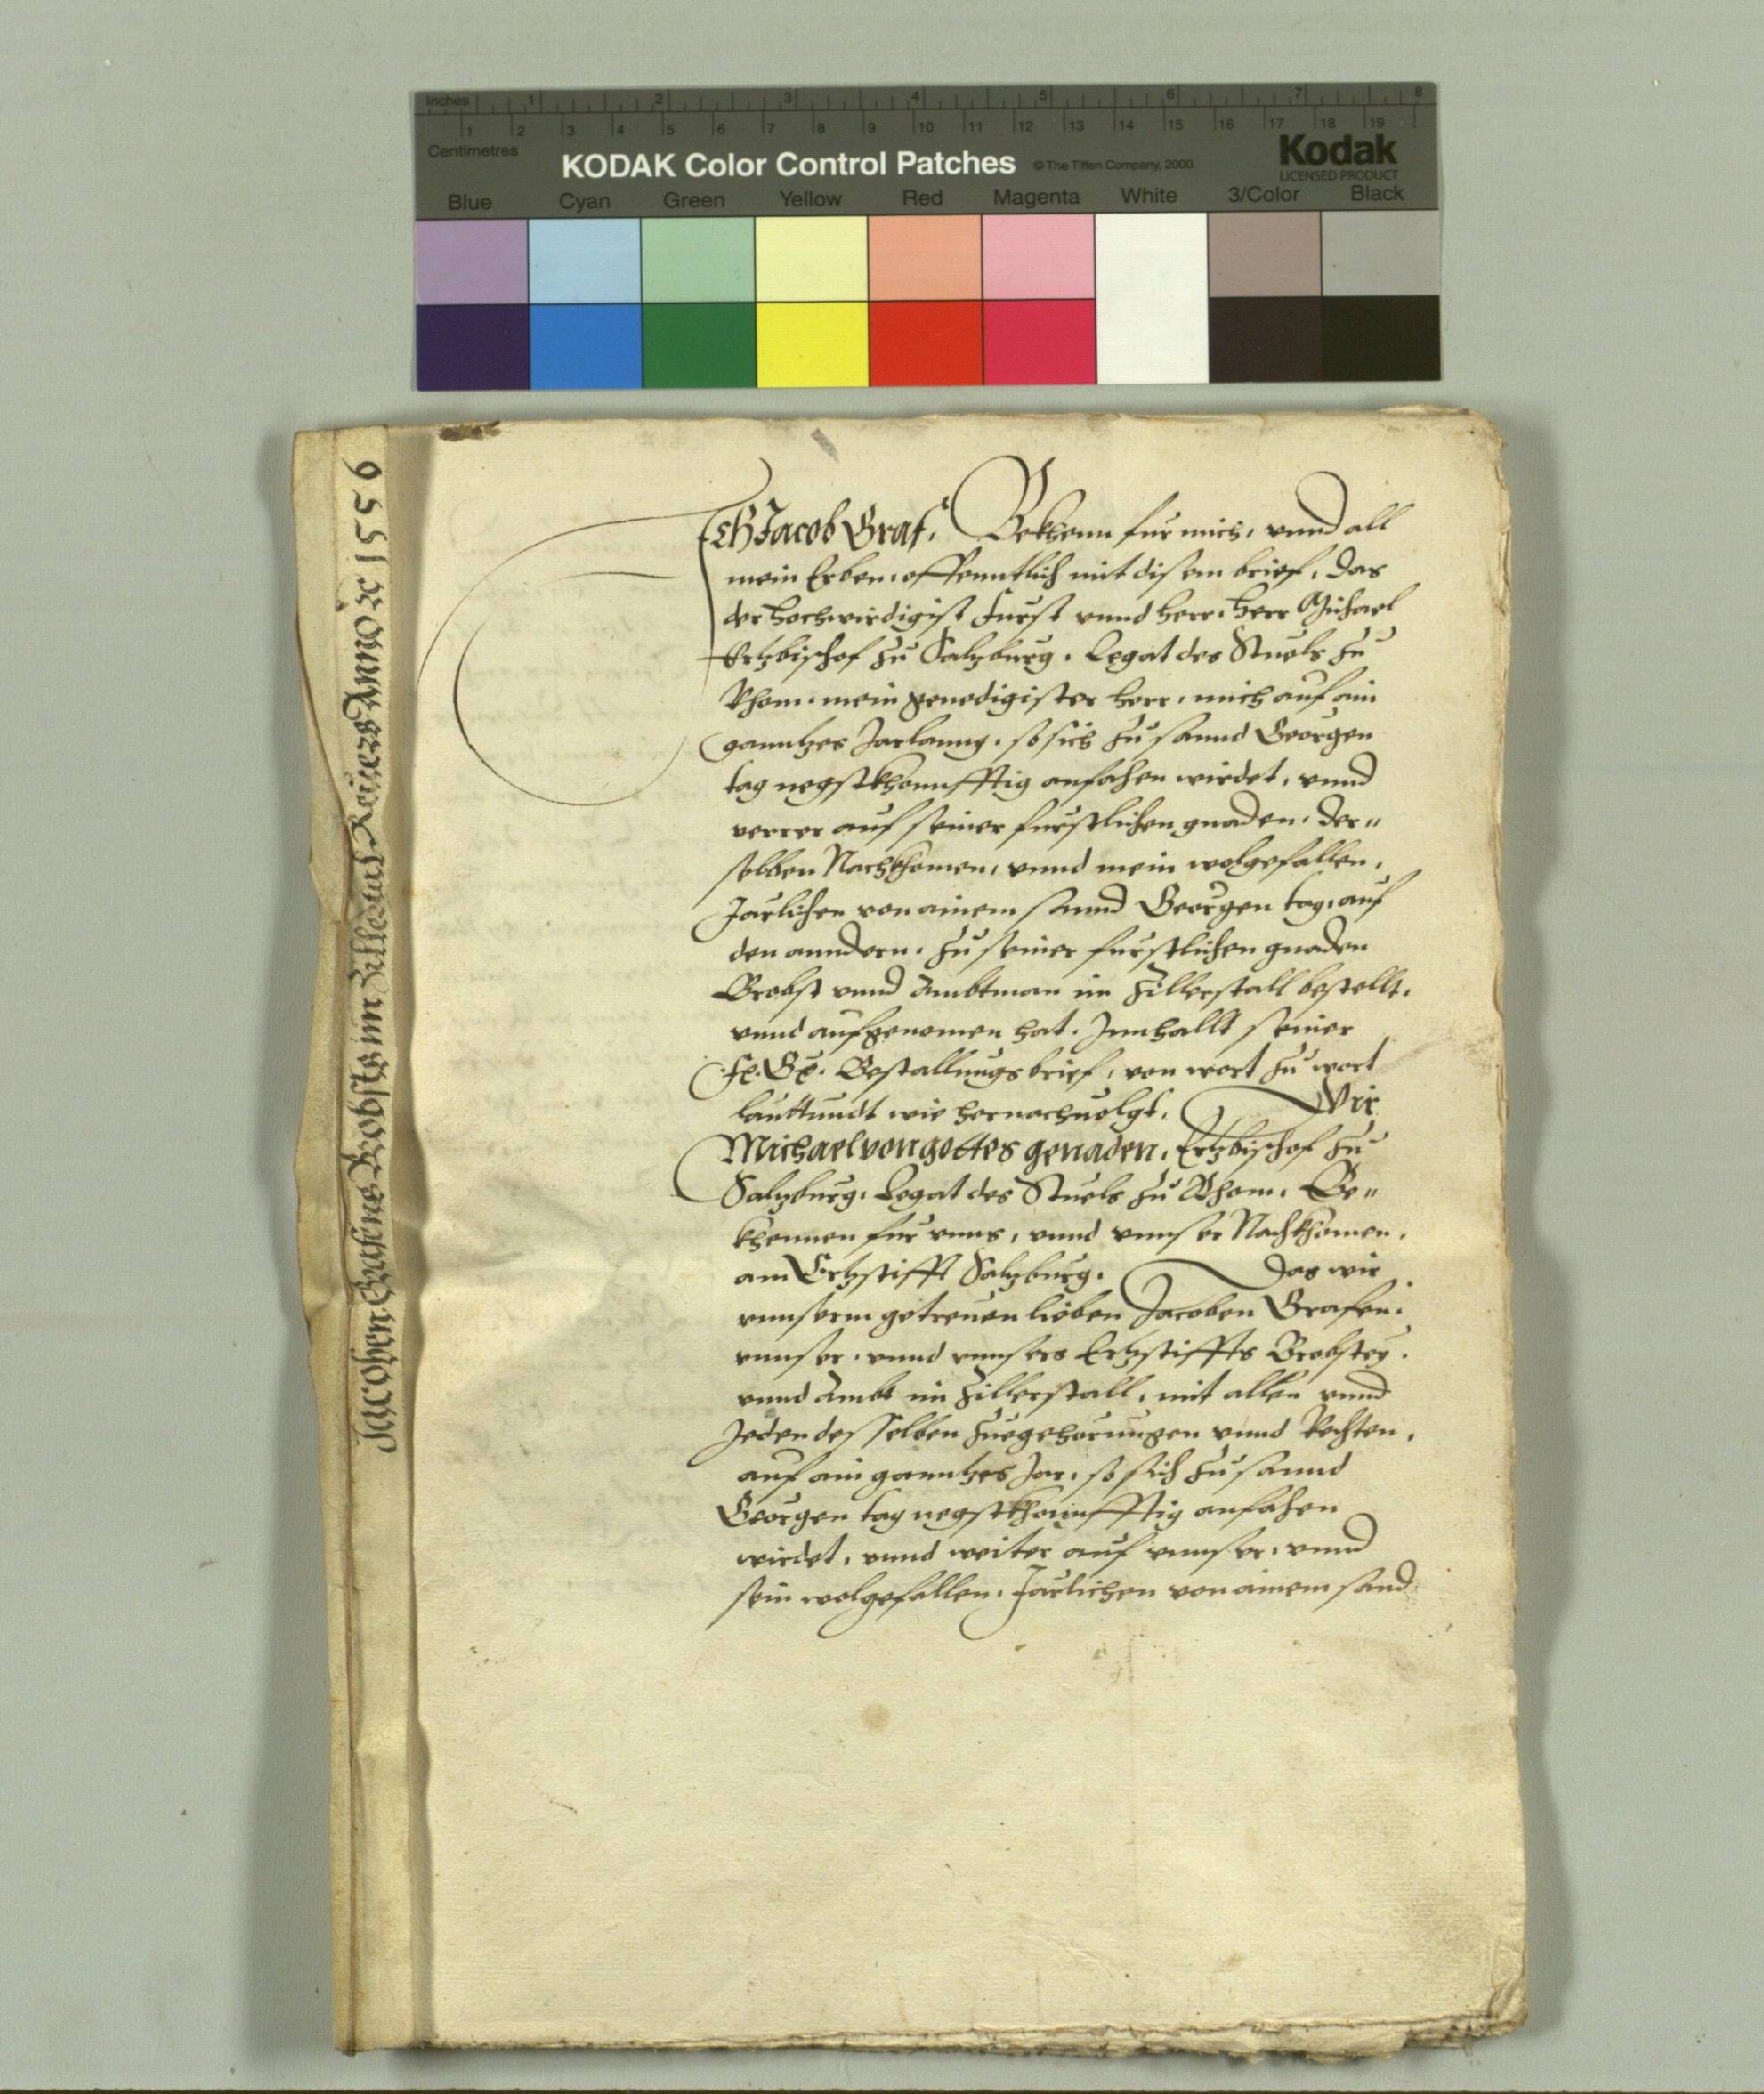 Inches 1 2 3 4 5 6 7 8
1 2 3 4 5 6 7 8 9 10 11 12 13 14 15 16 17 18 19
Centimetres
KODAK Color Control Patches © The Tiffen Company, 2000 Kodak
LICENSED PRODUCT
Blue Cyan Green Yellow Red Magenta White 3/Color Black
Jacoben Grafens Brobsts im Zillerstal Reuers Anno 1556
Ich Jacob Graf. Bekhenn fur mich, vnnd all
mein Erben offenntlich mit disem brief, das
der hochwirdigist Furst vnnd herr, herr Michael
Ertzbischof zu Salzburg. Legat des Stuels zu
Rhom. mein genedigister herr, mich auf ain
ganntzes Jarlanng. so sich zu sannd Georgen
tag negstkhonnfftig anfahen wirdet, vnnd
verrer auf seiner furstlichen gnaden. der„
selben Nachkhomen, vnnd mein wolgefallen.
Jarlichen von ainem sannd Georgen tag, auf
den anndern. zu seiner furstlichen gnaden
Brobst vnnd Ambtman im Zillerstall bestellt.
vnnd aufgenomen hat. Innhallt seiner
Fr. Gn. Bestallungsbrief, von wort zu wort
lauttundt wie hernachuolgt. Wir
Michael von gottes genaden. Ertzbischof zu
Salzburg. Legat des Stuels zu Rhom. Be„
khennen fur vnns, vnnd vnnser Nachkhomen.
am Ertzstifft Salzburg. Das wir
vnnserm getreuen lieben Jacoben Grafen.
vnnser. vnnd vnnsers Ertzstiffts Brobstey.
vnnd Ambt im Zillerstall, mit allen vnnd
Jeden desselben zuegehorungen vnnd Rechten.
auf ain ganntzes Jar, so sich zu sannd
Georgen tag negstkhonnfftig anfahen
wirdet, vnnd weiter auf vnnser, vnnd
sein wolgefallen. Jarlichen von ainem sand